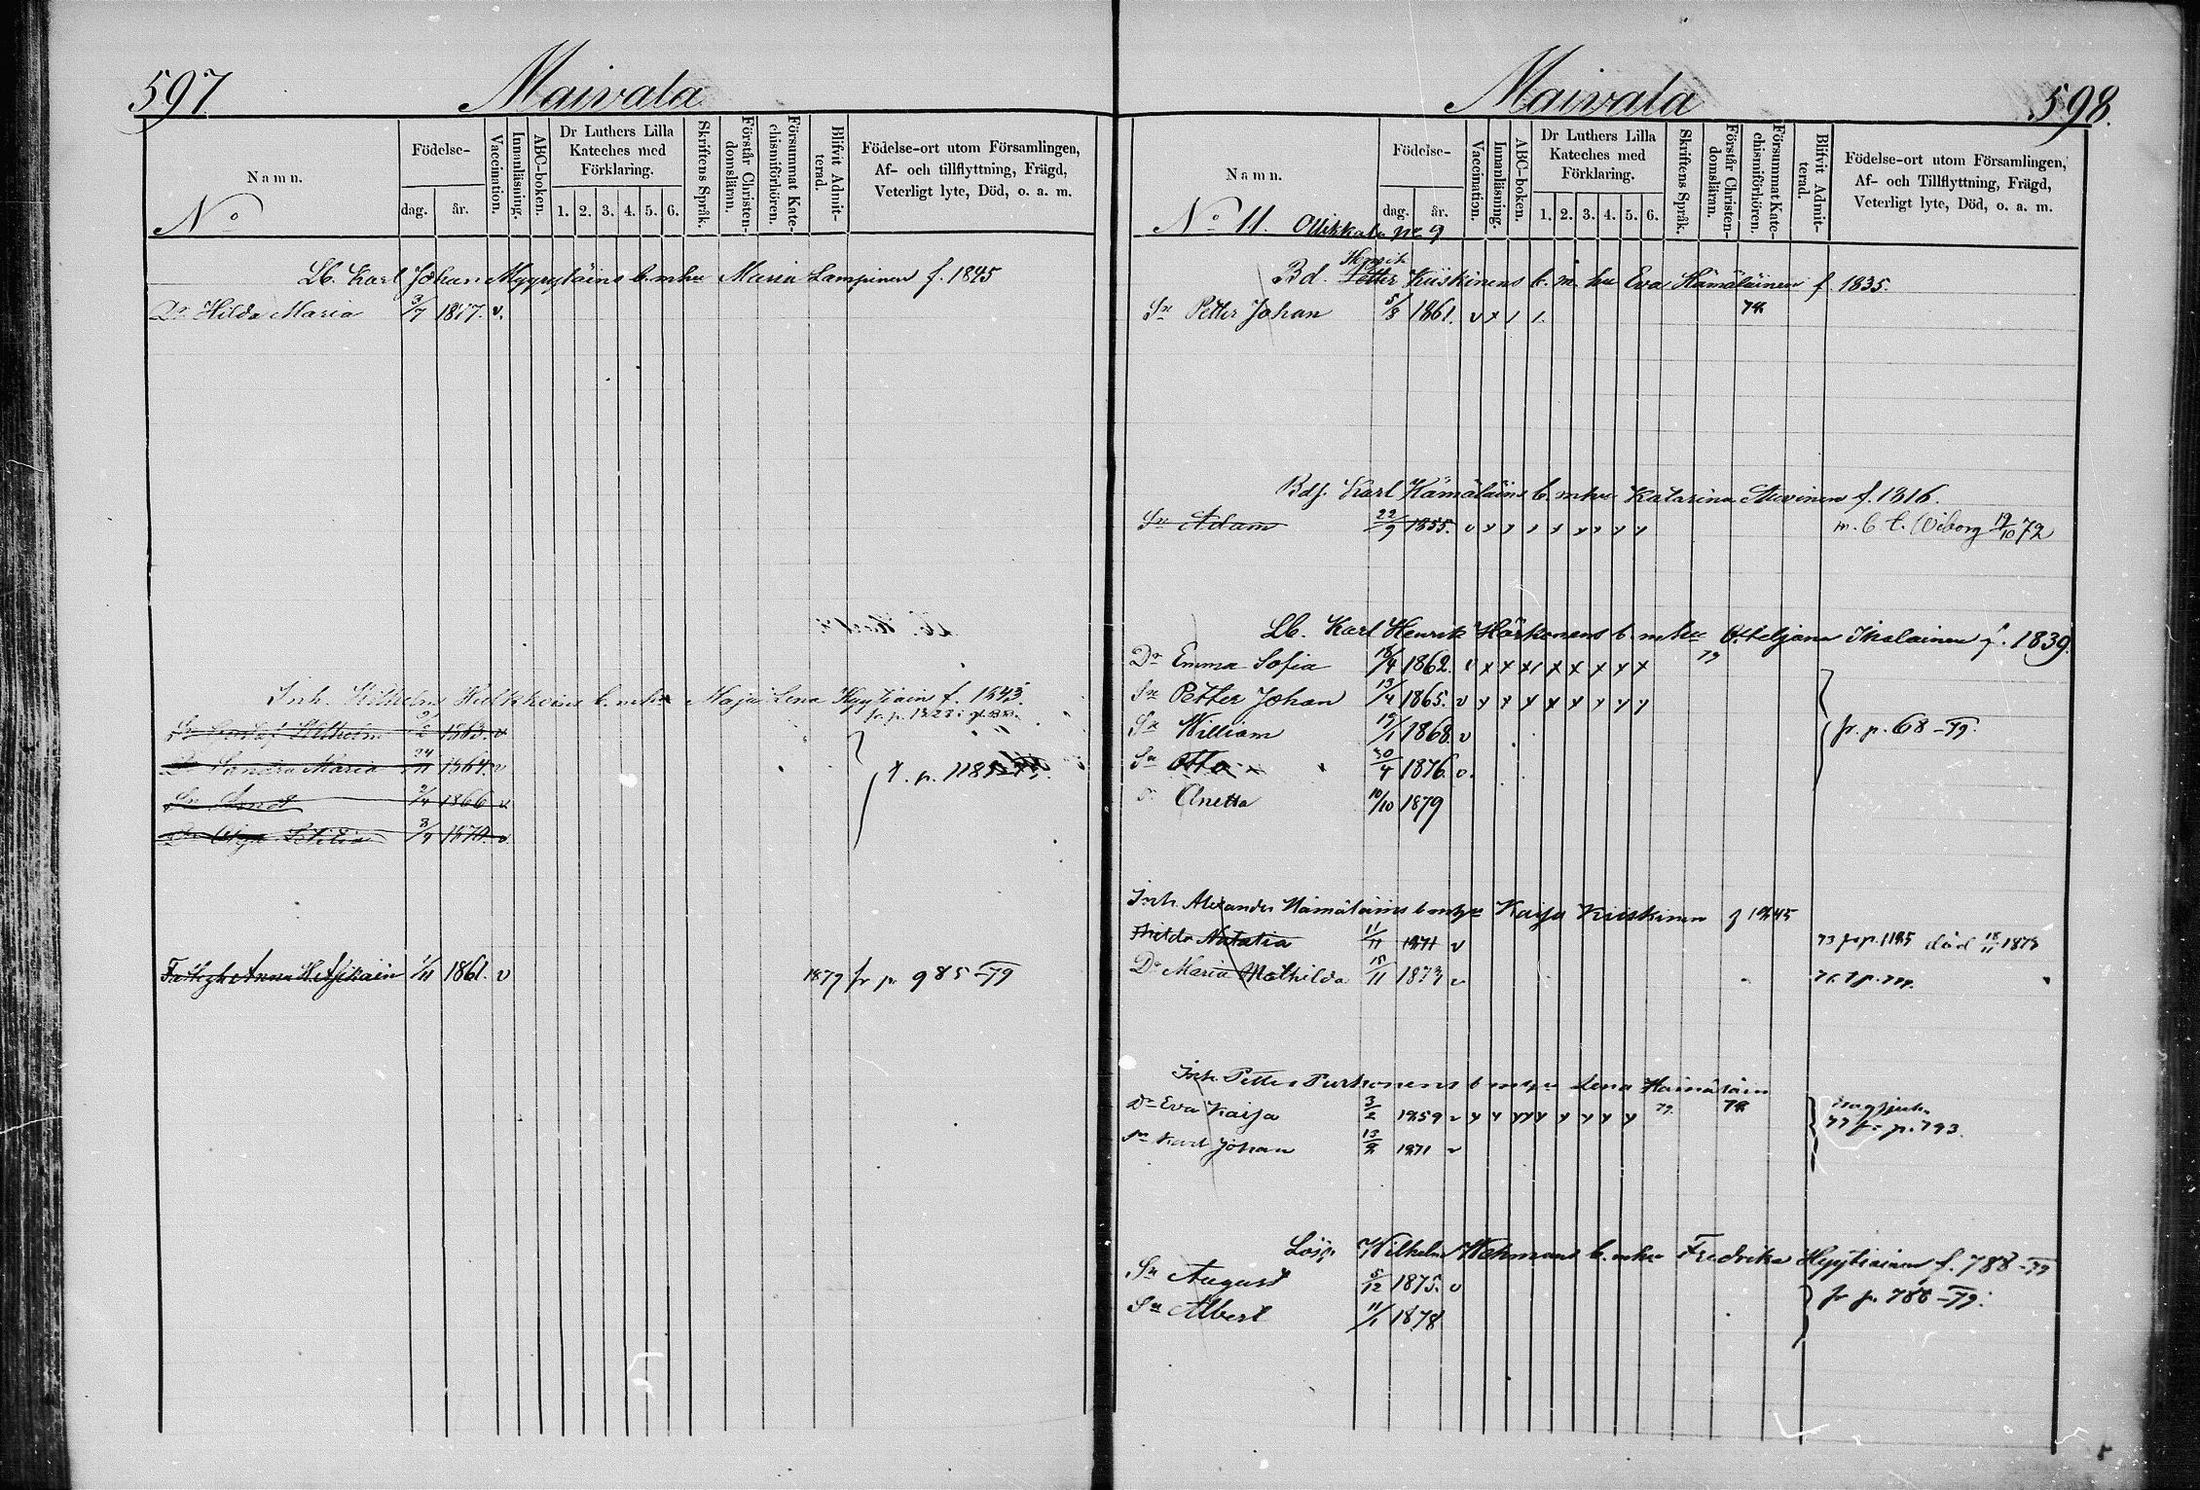 597
Maivala
Namn.
No
Födelse-
dag.
år.
Vaccination.
Innanläsning.
ABC-boken.
Dr Luthers Lilla
Kateches med
Förklaring.
1. 2. 3. 4. 5. 6.
Skriftens Språk.
Förstår Christen-
domsläran.
Försummat Kate-
chismiförhören.
Blifvit Admit-
terad.
Födelse-ort utom Församlingen,
Af- och tillflyttning, Frägd,
Veterligt lyte, Död, o. a. m.
Lb. Karl Johan b. m hu Maria Lampinen f. 1845
Dr Hilda Maria 3/7 1877. v.
Inh. b. mhu Maja Lena f. 1843
1863. v
Dr Maria 24/11 1864. v
Sn 2/4 1866 v
t. p.
Dr 3/9 1870. v.
Anna 1/11 1861. v 1879 fr p. 985-79
598.
Maivala
Namn.
No 11. Ollikkala No 9
Födelse-
dag.
år.
Vaccination.
Innanläsning.
ABC-boken.
Dr Luthers Lilla
Kateches med
Förklaring.
1. 2. 3. 4. 5. 6.
Skriftens Språk.
Förstår Christen-
domsläran.
Försummat Kate-
chismiförhören.
Blifvit Admit-
terad.
Födelse-ort utom Församlingen,
Af- och Tillflyttning, Frägd,
Veterligt lyte, Död, o. a. m.
Bd. Petter Kiiskinens b. m. hu Eva Hämäläinen f. 1835.
Sn Petter Johan 5/8 1861. v x 1 1. 78
Bdf. Karl Hämäläins b. mhu Katarina f. 1816.
Sn Adam 22/9 1855. v m. b. t. Wiborg 19/10 72
Lb. Karl Henrik Härkönens b. mhu Ikalainen f. 1839.
79
Dr Emma Sofia 18/4 1862. v x x x x x x x x
Sn Petter Johan 13/4 1865. v
Sn William 19/1 1868. v fr. p. 68-79.
Sn Otto 30/4 1876 v.
Anetta 10/10 1879
Inh. Alexander Hämäläins b mhu Kaisa Kiiskinen f 1845
Hilda Natalia 11/11 1871 v 73 fr p. 1185 död 1873
Dr Maria Mathilda 15/11 1873 v
Inh. Petter Purhonens b mhu Lena Hämäläin
Dr Eva Kaisa 3/2 1859 v 79. 78
Sn Karl Johan 13/9 1871 v 77 fr p. 793.
Lösp. Wilhelm b. mhu Fredrika Hyytiäinen f. 788-79
Sn August 5/12 1875. v
Sn Albert 11/1 1878 fr p. 788-79.